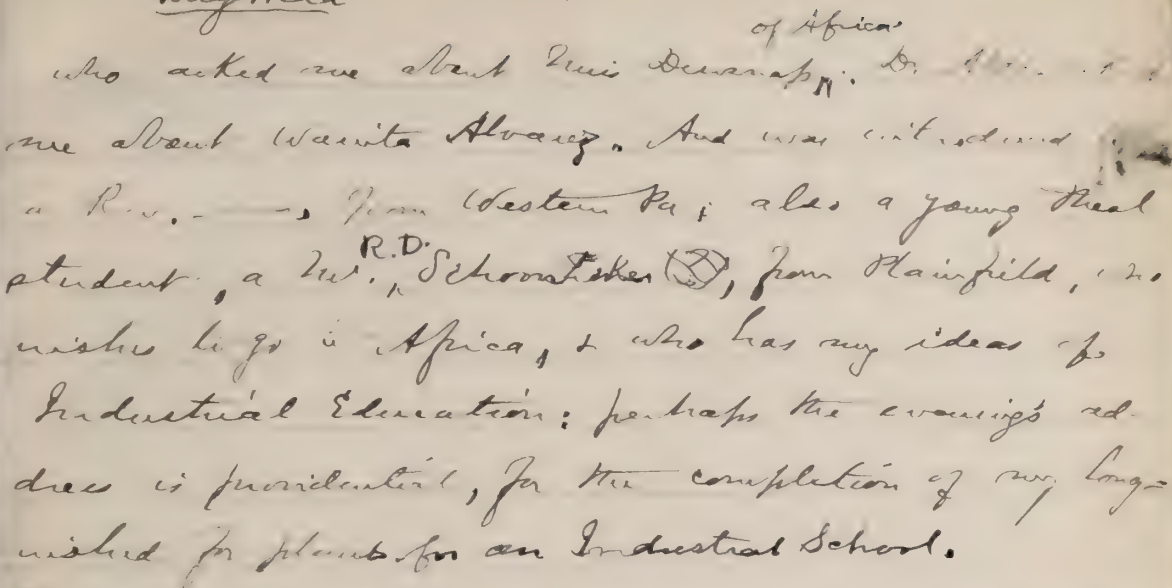 of Africa
who asked me about Miss Dewsnap; Dr.
me about Wanita Alvarez. And was introduced
a Rev. ——, from Western Pa; also a young Theol
student, a Mr. R.D. , from Plainfield, who
wishes to go to Africa, & who has my ideas of
Industrial Education; perhaps the evening's ad-
dress is providential, for the completion of my long-
wished for plans for an Industrial School.